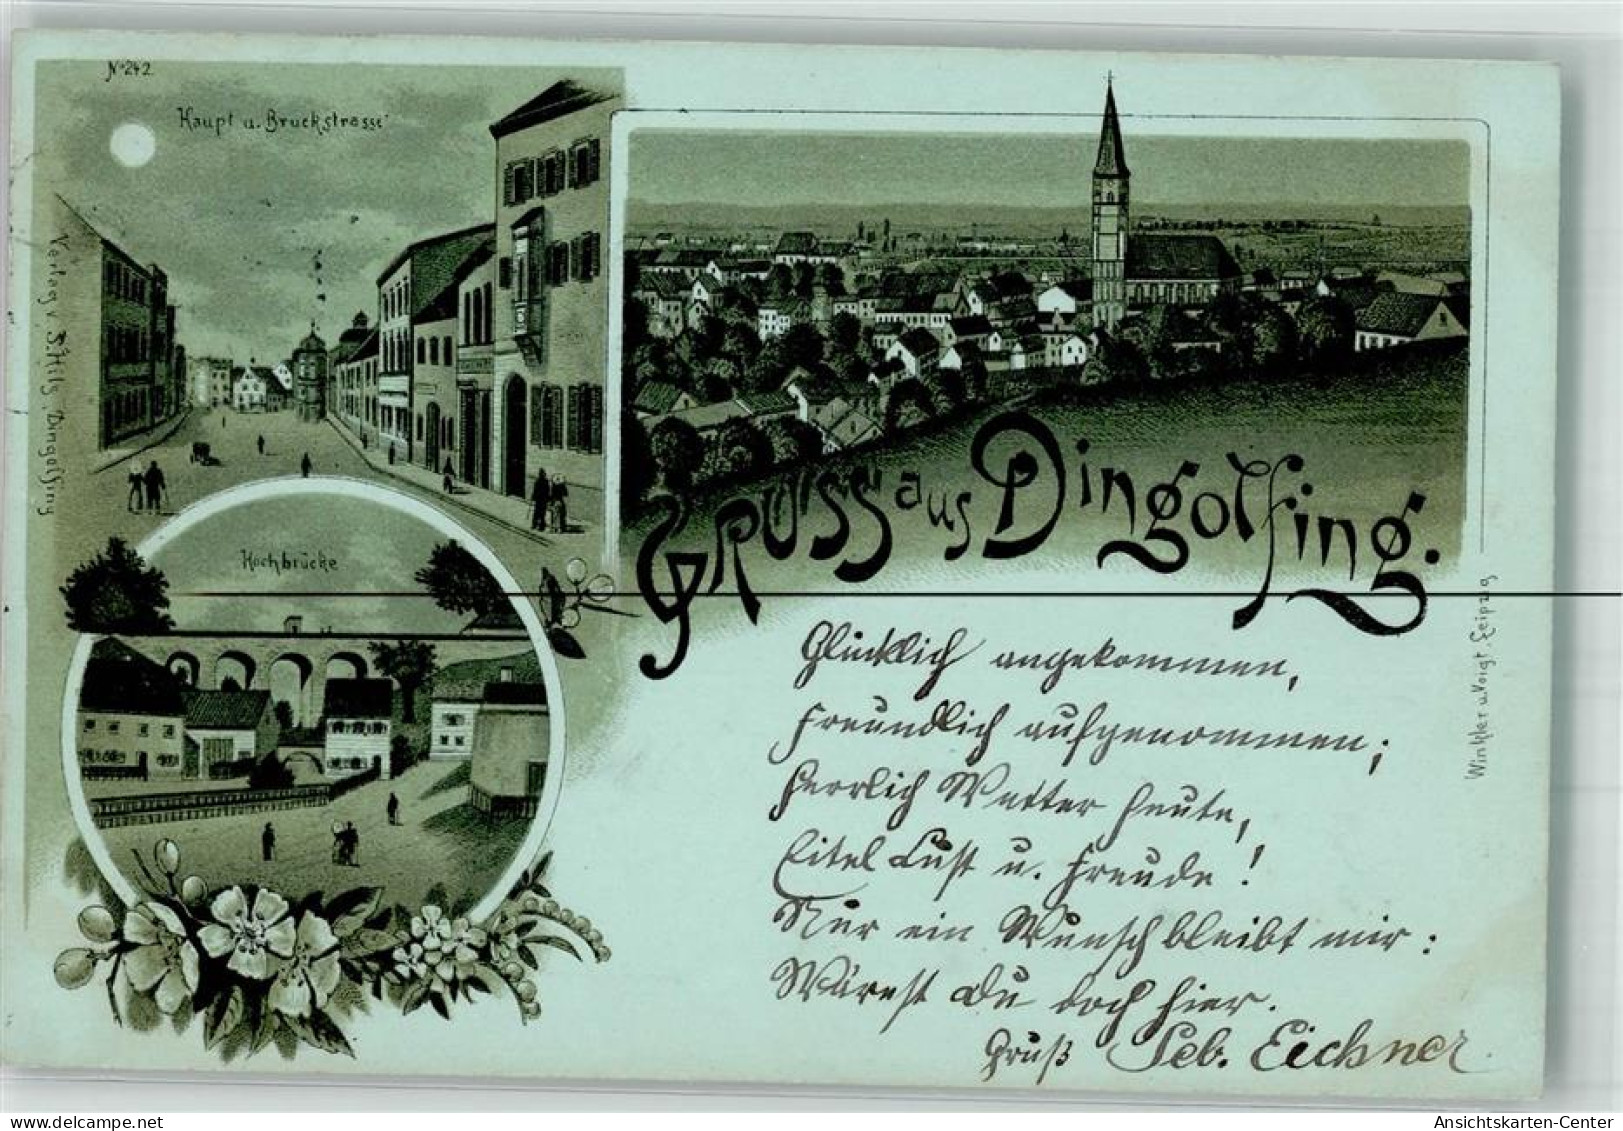 No 242
Haupt u. Bruckstrasse
Verlag v. S. Hills Dingolfing
Hochbrücke
Gruss aus Dingolfing.
Winkler u. Voigt, Leipzig
Glücklich angekommen,
Freundlich aufgenommen;
Herrlich Wetter heute,
Eitel Lust u. Freude!
Nur ein Wunsch bleibt mir:
Wärest Du doch hier.
Gruß Seb. Eichner
Ansichtskarten-Center